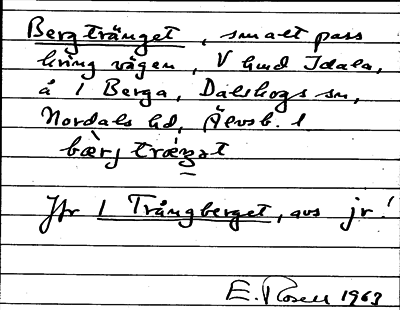 Bergtränget, smalt pass
kring vägen, V hmd Idala,
å 1 Berga, Dalskogs sn,
Nordals hd, Älvsb. l
bærj træŋət
Jfr 1 Trångberget, avs jr!
E. Rosell 1963